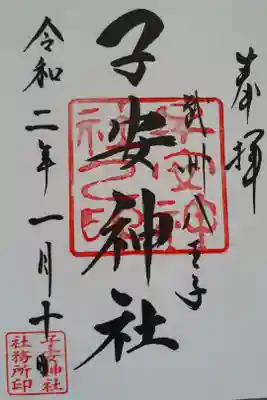 奉拝
武州八王子
子安神社
令和二年一月十日
子安神社
社務所印